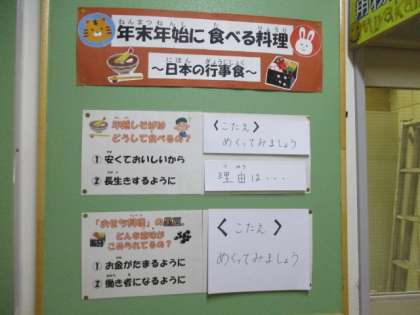 年末年始に食べる料理
～日本の行事食～
年越しそばは
どうして食べるの？
① 安くておいしいから
② 長生きするように
〈こたえ〉
めくってみましょう
理由は・・・
「おせち料理」の黒豆
どんな意味が
こめられてるの？
① お金がたまるように
② 働き者になるように
〈こたえ〉
めくってみましょう